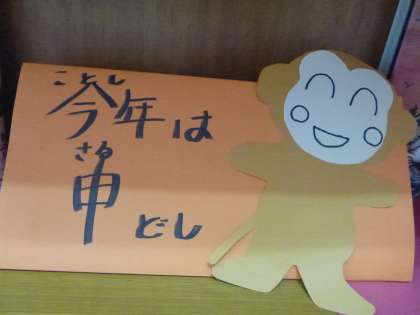 ことし
今年は
さる
申どし